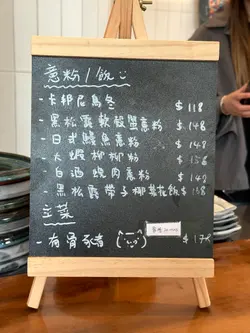 意粉/飯
- 卡邦尼烏冬 $118
- 黑松露軟殼蟹意粉 $148
- 日式鰻魚意粉 $148
- 大蝦
- 白酒蜆肉意粉 $148
- 黑松露帶子椰菜花飯 $168
主菜
- 有骨